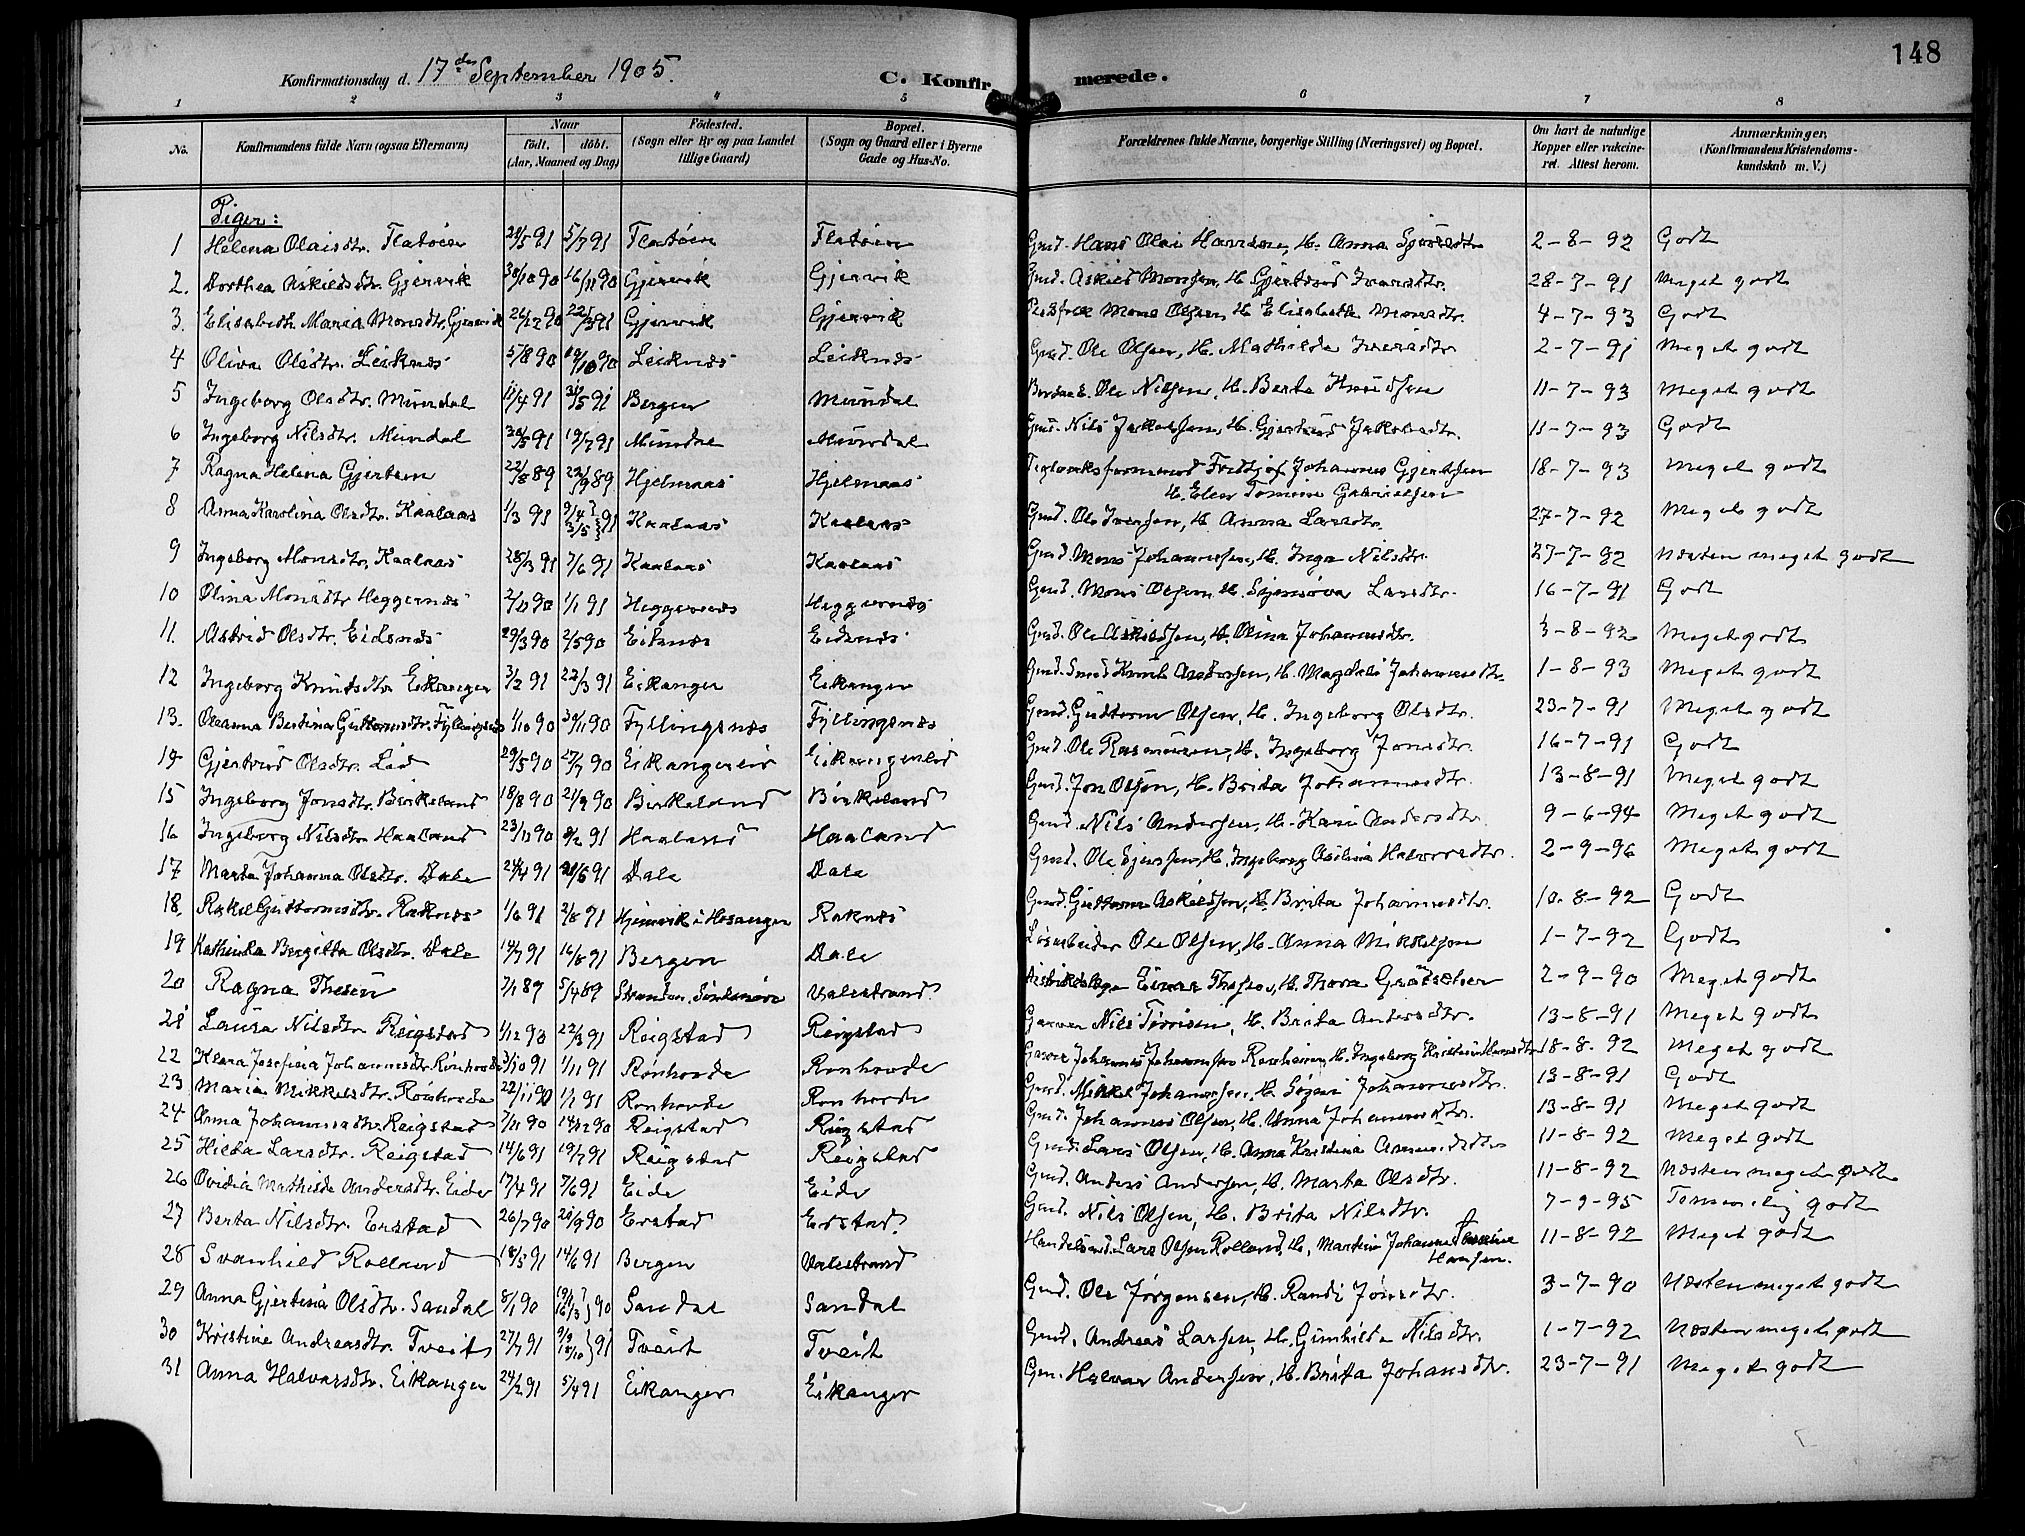 148
Konfirmationsdag d. 17de September 1905. C. Konfirmerede.
1 2 3 4 5 6 7 8
No. Konfirmandens fulde Navn (ogsaa Efternavn) Naar født. døbt. (Aar, Maaned og Dag) Fødested. (Sogn eller By og paa Landet tillige Gaard) Bopæl. (Sogn og Gaard eller i Byerne Gade og Hus-No. Forældrenes fulde Navne, borgerlige Stilling (Næringsvei) og Bopæl. Om havt de naturlige Kopper eller vakcineret. Attest herom. Anmærkninger, (Konfirmandens Kristendomskundskab m. V.)
Piger:
1 Helena Olaisdtr. Flatøen 5/7 91 Flatøen Flatøen Gmd. Hans Olai Hansen, H. Anna 2-8-92 Godt
2. Dorthea Askildsdtr. Gjervik 30/10 90 16/11 90 Gjervik Gjervik Gmd. Askild Monsen, H. Gjertrud Iversdtr. 28-7-91 Meget godt
3. Elisabeth Maria Monsdtr. Gjervik 26/12 90 22/3 91 Gjervik Gjervik Mons Olsen, H. Elisabeth Monsdtr. 4-7-93 Godt
4 Oliva Olsdtr. Leiknes 5/8 90 19/10 90 Leiknes Leiknes Gmd. Ole Olsen, H. Mathilde Iversdtr. 2-7-91 Meget godt
5 Ingeborg Olsdtr. Mundal 11/4 91 31/5 91 Bergen Mundal Ole Nilsen, H. Berta Knudsen 11-7-93 Meget godt
6 Ingeborg Nilsdtr. Mundal 30/5 91 19/7 91 Mundal Mundal Gmd. Nils Jakobsen, H. Gjertrud Jakobsdtr. 11-7-93 Godt
7 Ragna Helena Gjertsen 22/8 89 22/9 89 Hjelmaas Hjelmaas Teglværksformand Fridtjof Johannes Gjertsen 18-7-93 Meget godt
H. Elen Tomine Gabrielsen
8 Anna Karolina Olsdtr. Kaalaas 1/3 91 9/4 3/5 } 91 Kaalaas Kaalaas Gmd. Ole Iversen, H. Anna Larsdtr. 27-7-92 Meget godt
9 Ingeborg Monsdtr. Kaalaas 28/3 91 7/6 91 Kaalaas Kaalaas Gmd. Mons Johannesen, H. Inga Nilsdtr. 27-7-92 Næsten meget godt
10 Olina Monsdtr. Heggernes 2/11 90 1/1 91 Heggernes Heggernes Gmd. Mons Olsen, H. Larsdtr. 16-7-91 Godt
11. Astrid Olsdtr. Eidsnes 29/3 90 2/5 90 Eidsnes Eidsnes Gmd. Ole Askildsen, H. Olina Johannesdtr. 3-8-92 Meget godt
12 Ingeborg Knutsdtr. Eikanger 3/2 91 22/3 91 Eikanger Eikanger Gmd. Smed Knut Andersen, H. Magdeli Johannesdtr. 1-8-93 Meget godt
13. Oleanna Bertina Guttormsdtr. Fyllingsnes 1/10 90 30/11 90 Fyllingsnes Fyllingsnes Gmd. Guttorm Olsen, H. Ingeborg Olsdtr. 23-7-91 Meget godt
14 Gjertrud Olsdtr. Lid 29/5 90 27/7 90 Eikangerlid Eikangerlid Gmd. Ole Rasmussen, H. Ingeborg Jonsdtr. 16-7-91 Godt
15 Ingeborg Jonsdtr. Birkeland 18/8 90 21/9 90 Birkeland Birkeland Gmd. Jon Olsen, H. Brita Johannesdtr. 13-8-91 Meget godt
16 Ingeborg Nilsdtr. Haaland 23/11 90 8/2 91 Haaland Haaland Gmd. Nils Andersen, H. Kari Andersdtr. 9-6-94 Meget godt
17 Marta Johanna Olsdtr. Dale 24/4 91 21/6 91 Dale Dale Gmd. Ole H. Ingeborg Halvorsdtr. 2-9-96 Meget godt
18. Rakel Guttormsdtr. Raknes 1/6 91 2/8 91 i Hosanger Raknes Gmd. Guttorm Askildsen, H. Brita Johannesdtr. 10-8-92 Godt
19 Kathinka Bergitta Olsdtr. Dale 14/7 91 16/8 91 Bergen Dale Løsarbeider Ole Olsen, H. Anna Mikkelsen 1-7-92 Godt
20 Ragna Thesen 7/1 89 5/4 89 Stranden, Søndmøre Valestrand. Distriktslæge Einar Thesen, H. Thora 2-9-90 Meget godt
21 Laura Nilsdtr. Reigstad 1/12 90 22/3 91 Reigstad Reigstad Garver Nils H. Brita Andersdtr. 13-8-91 Meget godt
22 Klara Josefina Johannesdtr. Rønhovde 3/10 91 1/11 91 Rønhovde Rønhovde Garver Johannes Johannesen H. Ingeborg Kristina 18-8-92 Meget godt
23 Maria Mikkelsdtr. Rønhovde 22/11 90 1/1 91 Rønhovde Rønhovde Gmd. Mikkel Johannesen, H. Johannesdtr. 13-8-91 Godt
24 Anna Johannesdtr. Reigstad 7/11 90 14/12 90 Reigstad Reigstad Gmd. Johannes Olsen, H. Anna Johannesdtr. 13-8-91 Meget godt
25 Hilda Larsdtr. Reigstad 14/6 91 19/7 91 Reigstad Reigstad Gmd. Lars Olsen, H. Anna Kristina 11-8-92 Meget godt
26 Ovidia Mathilde Andersdtr. Eide 17/4 91 7/6 91 Eide Eide Gmd. Anders Andersen, H. Marta Olsdtr. 11-8-92 Næsten meget godt
27 Berta Nilsdtr. Erstad 26/7 90 28/9 90 Erstad Erstad Gmd. Nils Olsen, H. Brita Nilsdtr. 7-9-95 Temmelig godt
28 Svanhild Rolland 18/3 91 14/6 91 Bergen Valestrand Handelsmd. Lars Olsen Rolland, H. Martine Johanne 11-8-92 Meget godt
Hansen.
29 Anna Gjertina Olsdtr. Sandal 8/1 90 16/3 } 90 Sandal Sandal Gmd. Ole Jørgensen, H. Randi Jonsdtr. 3-7-90 Næsten meget godt
30 Kristine Andreasdtr. Tveit 27/7 91 9/9 18/10 } 91 Tveit Tveit Gmd. Andreas Larsen, H. Gunhilda Nilsdtr. 1-7-92 Næsten meget godt
31 Anna Halvarsdtr. Eikanger 24/2 91 5/4 91 Eikanger Eikanger Gm. Halvar Andersen, H. Brita Johansdtr. 23-7-91 Meget godt